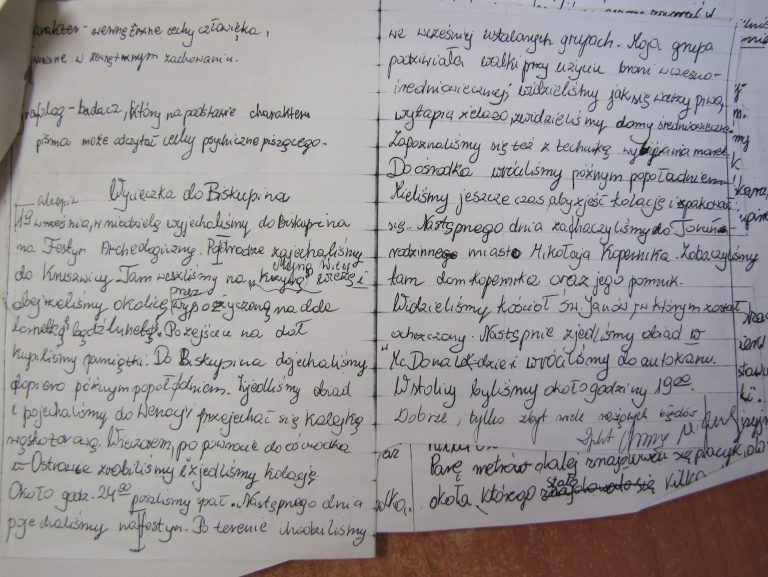 charakter - wewnętrzne cechy człowieka,
w zewnętrznym zachowaniu.
grafolog - badacz, który na podstawie charakteru
pisma może odczytać cechy psychiczne piszącego.
Wycieczka do Biskupina
19 września, w niedzielę wyjechaliśmy do Biskupina
na Festyn Archeologiczny. Po drodze zajechaliśmy
do Kruszwicy. Tam weszliśmy na "Mysią Wieżę" i
obejrzeliśmy okolicę przez wypożyczoną na dole
lornetkę bądź lunetę. Po zejściu na dół
kupiliśmy pamiątki. Do Biskupina dojechaliśmy
dopiero późnym popołudniem. Zjedliśmy obiad
i pojechaliśmy do Wenecji przejechać się kolejką
wąskotorową. Wieczorem, po powrocie do ośrodka
w Ostrowie zrobiliśmy i zjedliśmy kolację
Około godz. 24⁰⁰ poszliśmy spać. Następnego dnia
pojechaliśmy na festyn. Po terenie chodziliśmy
we wcześniej ustalonych grupach. Moja grupa
podziwiała walki przy użyciu broni wczesno-
średniowiecznej, widzieliśmy jak się warzy piwo,
wytapia żelazo, zwiedzieliśmy domy średniowieczne
Zapoznaliśmy się też z techniką wybijania monet
Do ośrodka wróciliśmy późnym popołudniem
Mieliśmy jeszcze czas, aby zjeść kolację i spakować
się. Następnego dnia zahaczyliśmy do Torunia-
rodzinnego miasto Mikołaja Kopernika. Zobaczyliśmy
tam dom Kopernika oraz jego pomnik.
Widzieliśmy kościół Św. Janów, w którym został
ochrzczony. Następnie zjedliśmy obiad w
"McDonald'dzie i wróciliśmy do autokaru.
W stolicy byliśmy około godziny 19⁰⁰.
Dobrze, tylko zbyt wiele błędów
Parę metrów dalej znajdował się placyk,
około którego stało kilka